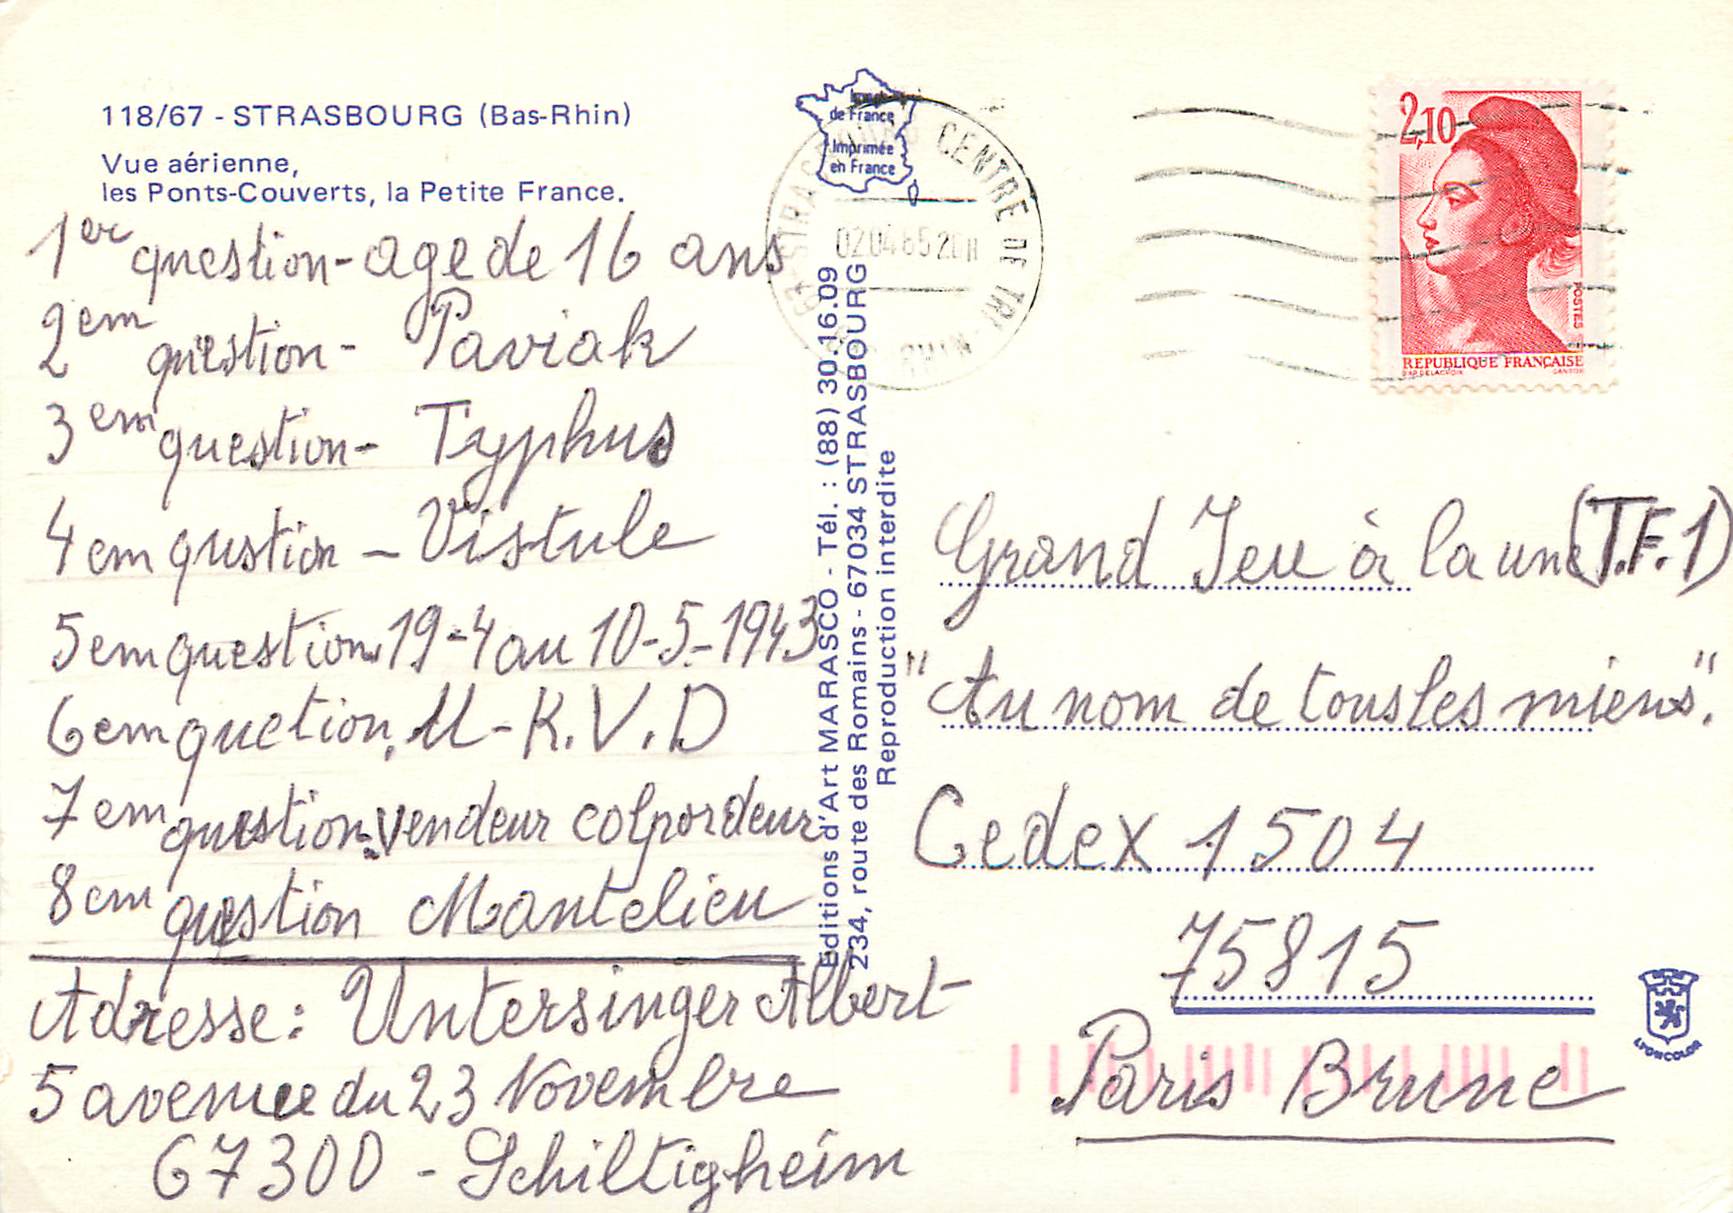 118/67 - STRASBOURG (Bas-Rhin)
Vue aérienne,
les Ponts-Couverts, la Petite France.
1er question - age de 16 ans
2em question - Paviak
3em question - Typhus
4em qustion - Vistule
5em question. 19-4 au 10-5-1943
6em quction. N-K.V.D
7em question. vendeur colpordeur
8em question Mantelieu
Adresse: Untersinger Albert
5 avenue du 23 Novembre
67300 - Schiltigheim
Editions d'Art MARASCO - Tél. : (88) 30.16.09
234, route des Romains - 67034 STRASBOURG
Reproduction interdite
de France
Imprimée
en France
CENTRE DE TRI
2,10
POSTES
REPUBLIQUE FRANÇAISE
Grand Jeu à la une (T.F.1)
"Au nom de tous les miens".
Cedex 1504
75815
Paris Brune
LYONCOLOR